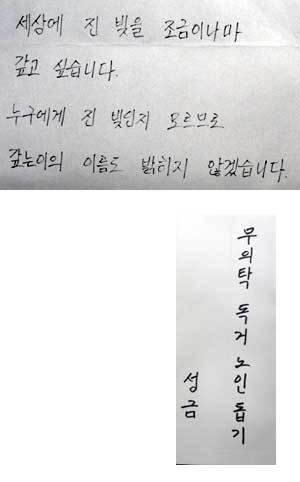 세상에 진 빚을 조금이나마
갚고 싶습니다.
누구에게 진 빚인지 모르므로
갚는이의 이름도 밝히지 않겠습니다.
무의탁 독거노인돕기
성금